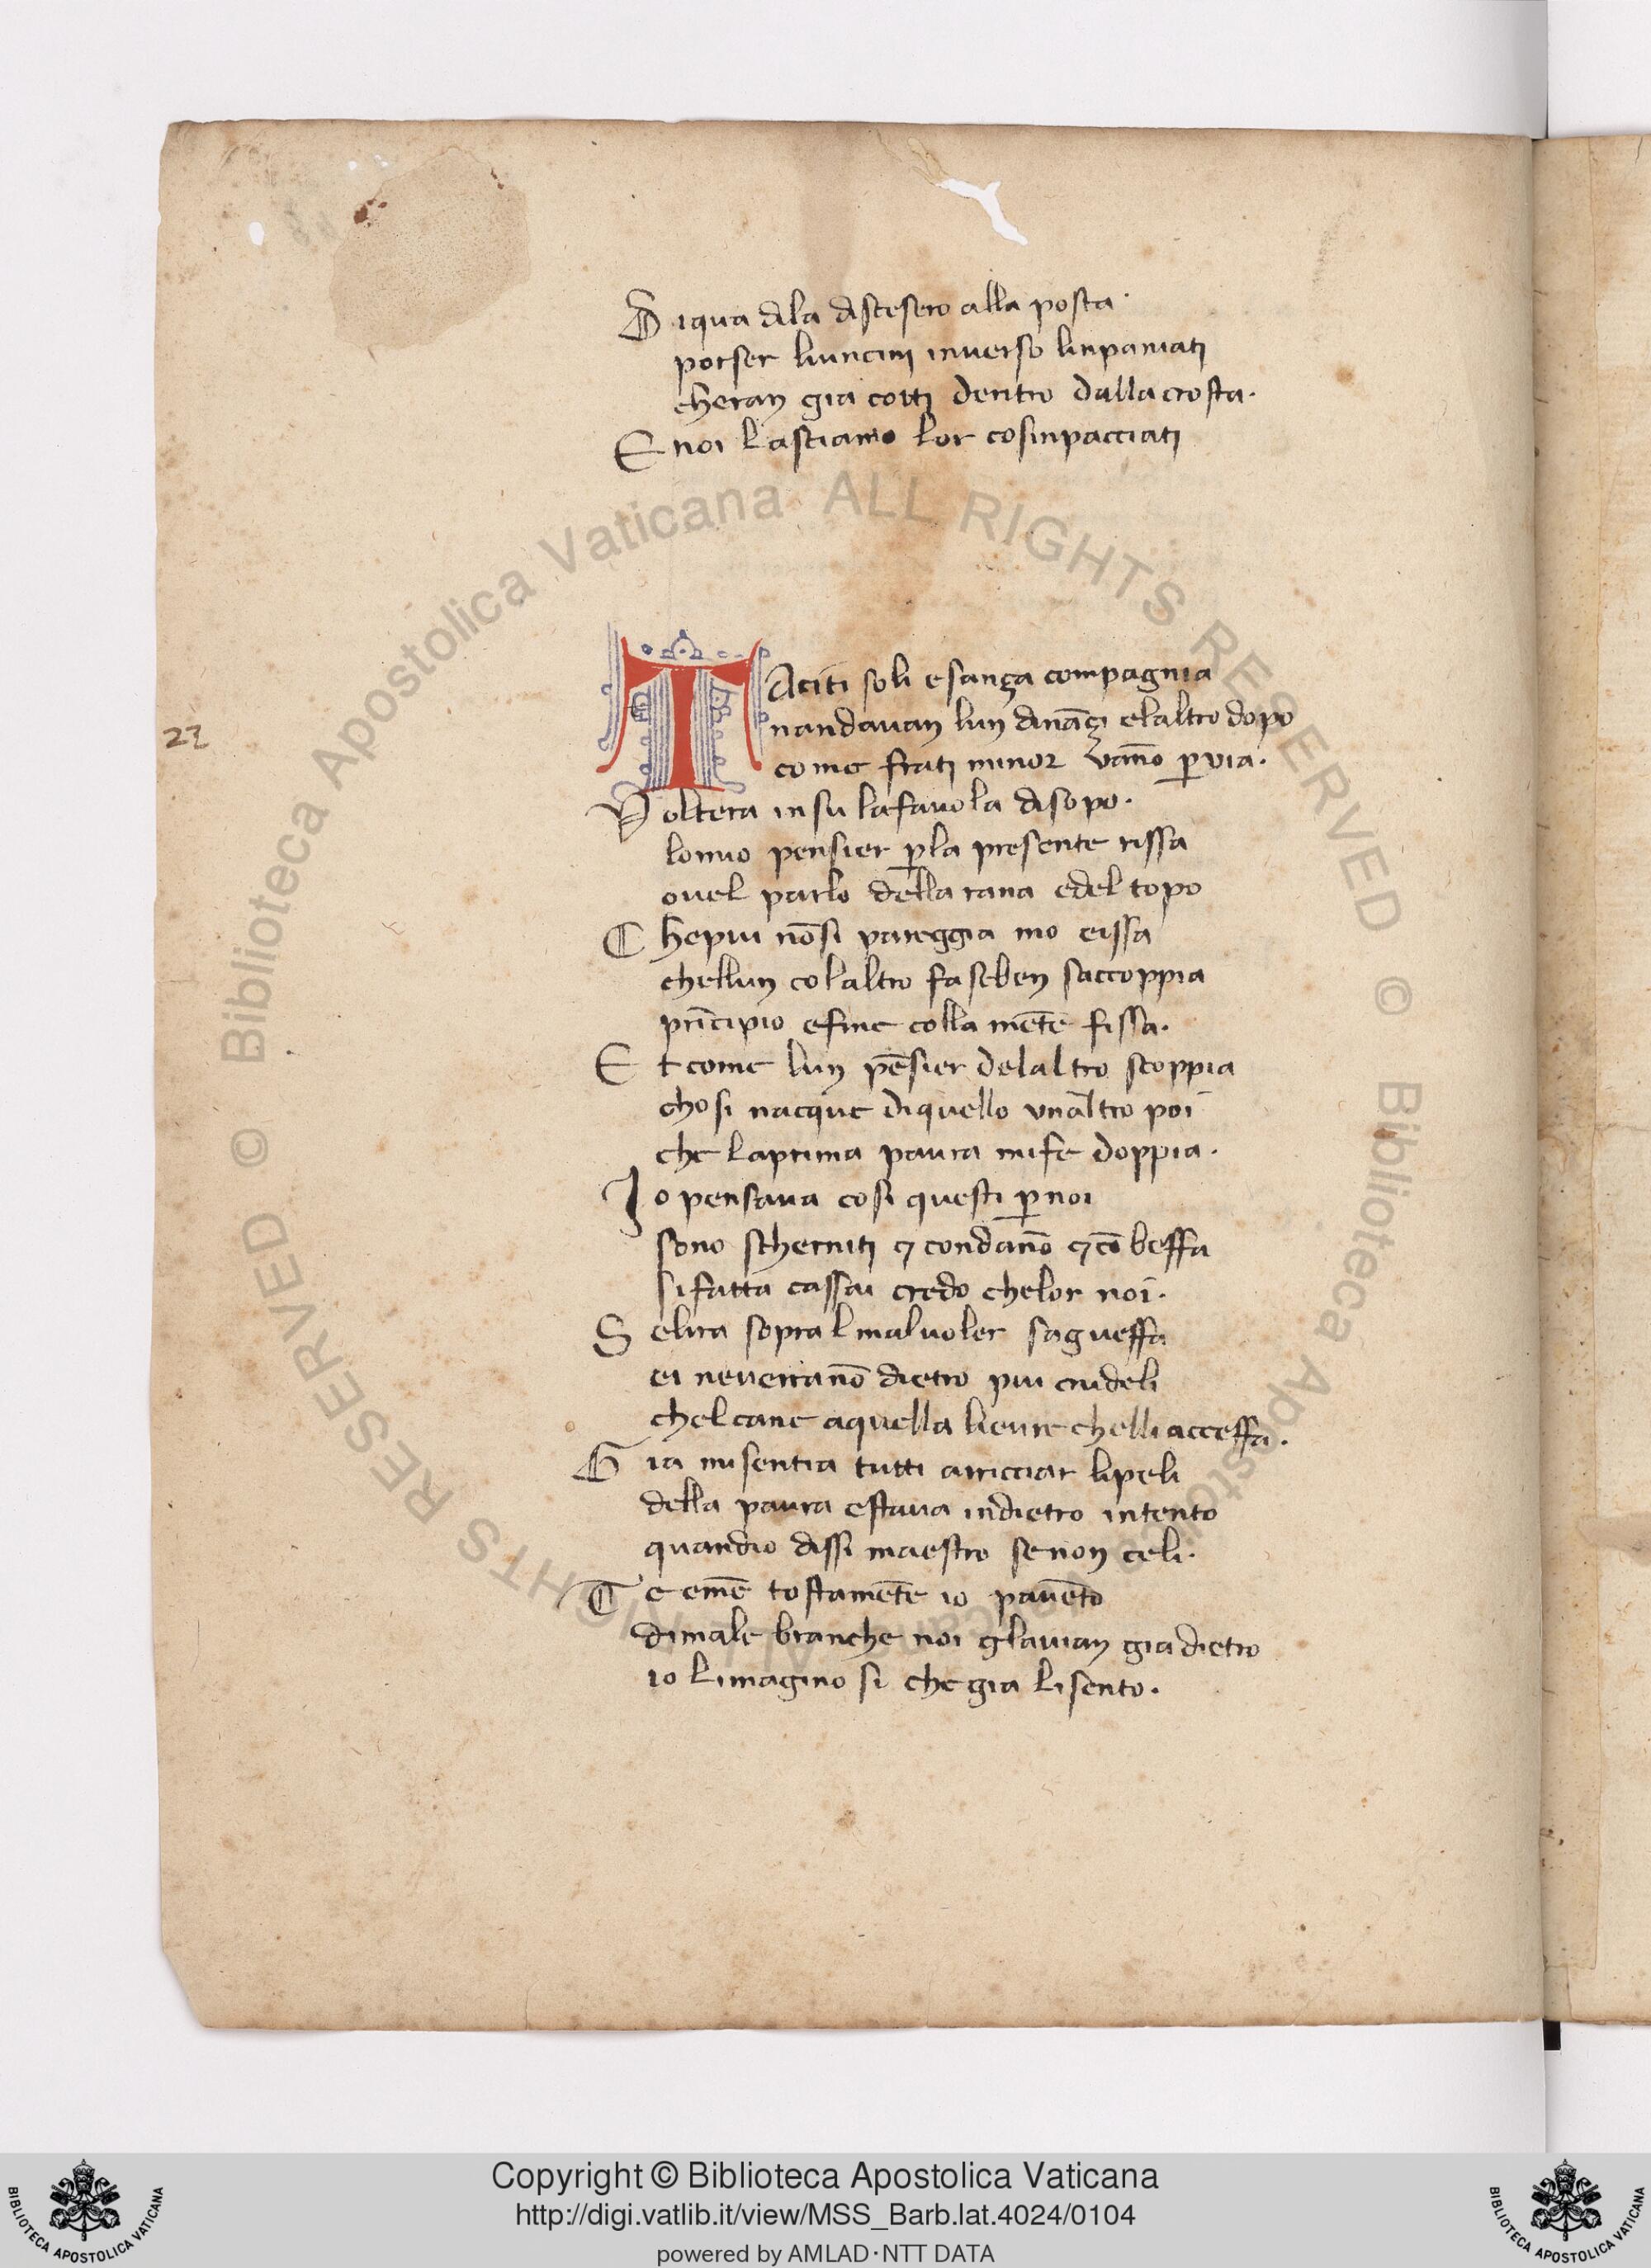 Diqua dila discesero alla posta·
porser liuncini inuerso linpaniati
cheran gia cotti dentro dalla crosta·
E noi lasciamo lor cosinpacciati
TAciti soli esança compagnia
nandauan lun dināçi elaltro dopo
come frati minor vāno ꝑ via·
Uoltera insu lafauola disopo·
lomio pensier ꝑla presente rissa
ouel parlo della rana edel topo
Chepiu nōsi pareggia mo eissa
chellun colaltro faseben saccoppia
prīcipio efine colla mēte fissa·
Et come lun pēsier delaltro scoppia
chosi nacque diquello vnaltro poi
che laprima paura mife doppia·
Io pensaua cosi questi ꝑ noi
sono scherniti ⁊ condāno ⁊ cō beffa
sifatta cassai credo chelor noi·
Selira sopra lmaluoler sagueffa
ei neuerranō dietro piu crudeli
chelcane aquella lieure chelli acceffa·
Gia misentia tutti arricciar lipeli
della paura estaua indietro intento
quandio dissi maestro senon celi·
Te emē tostamēte io pauēto
dimale branche noi glauian gia dietro
io limagino si che gia lisento·
27
Biblioteca Apostolica Vaticana ALL RIGHTS RESERVED ©
Biblioteca Apostolica Vaticana ALL RIGHTS RESERVED ©
Copyright © Biblioteca Apostolica Vaticana
http://digi.vatlib.it/view/MSS_Barb.lat.4024/0104
powered by AMLAD·NTT DATA
BIBLIOTECA APOSTOLICA VATICANA
BIBLIOTECA APOSTOLICA VATICANA